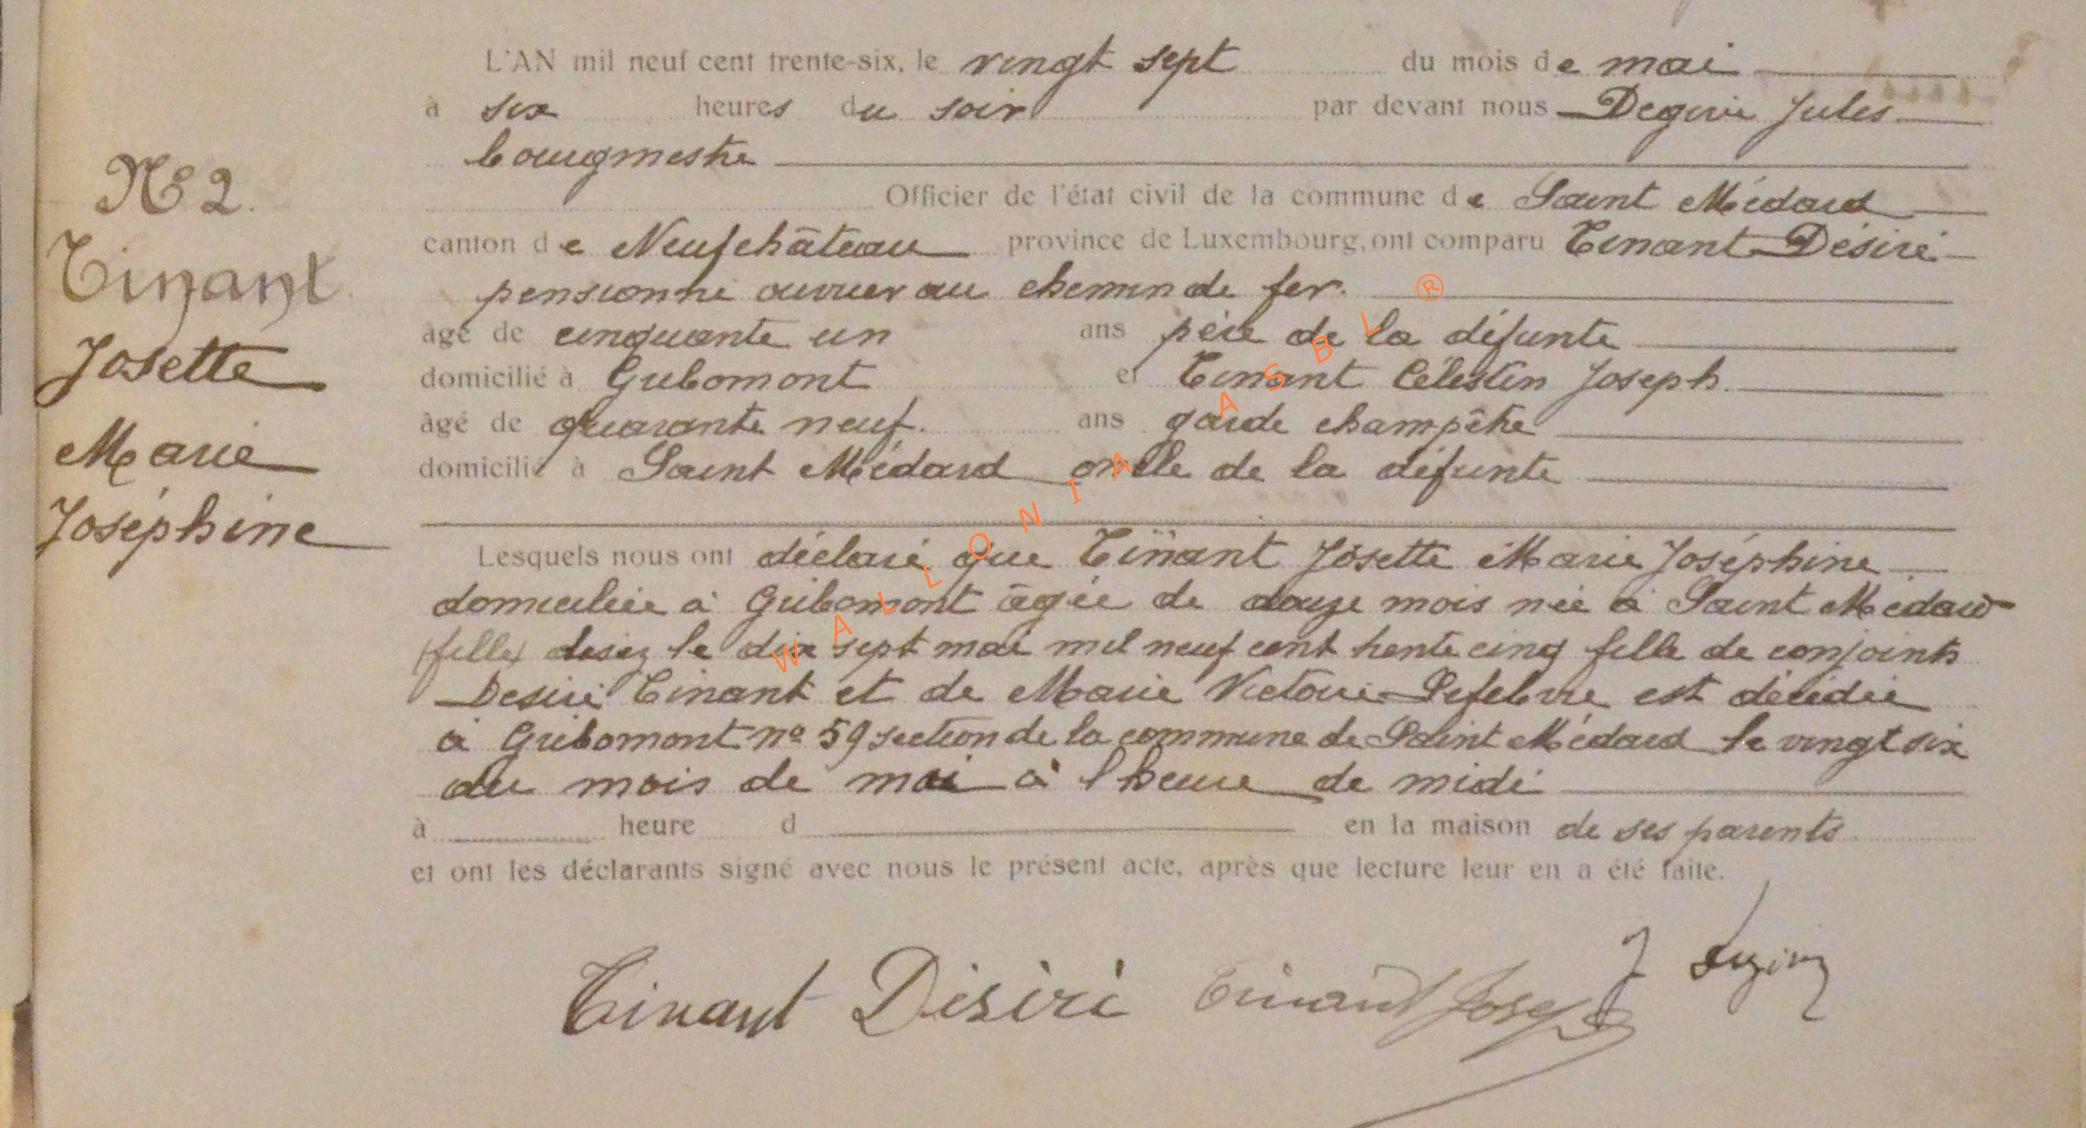 L'AN mil neuf cent trente-six, le vingt sept du mois de mai
à six heures du soir par devant nous Degivie Jules
bourgmestre
Officier de l'état civil de la commune de Saint Médard
canton de Neufchâteau province de Luxembourg, ont comparu Tinant Désiré
pensionné ouvrier au chemin de fer.
âgé de cinquante un ans père de la défunte
domicilié à Gribomont et Tinant Célestin Joseph
âgé de quarante neuf. ans garde champêtre
domicilié à Saint Médard oncle de la défunte
Lesquels nous ont déclaré que Tinant Josette Marie Joséphine
domiciliée à Gribomont âgée de douze mois née à Saint Médard
(fille) le dix sept mai mil neuf cent trente cinq fille de conjoints
Desiré Tinant et de Marie Victoire Lefebvre est décédée
à Gribomont nº 59 section de la commune de Saint Médard le vingt six
du mois de mai à l'heure de midi
à heure d en la maison de ses parents
et ont les déclarants signé avec nous le présent acte, après que lecture leur en a été faite.
Nº 2.
Tinant
Josette
Marie
Joséphine
Tinant Désiré Tinant Joseph J
WALLONIA ASBL ®